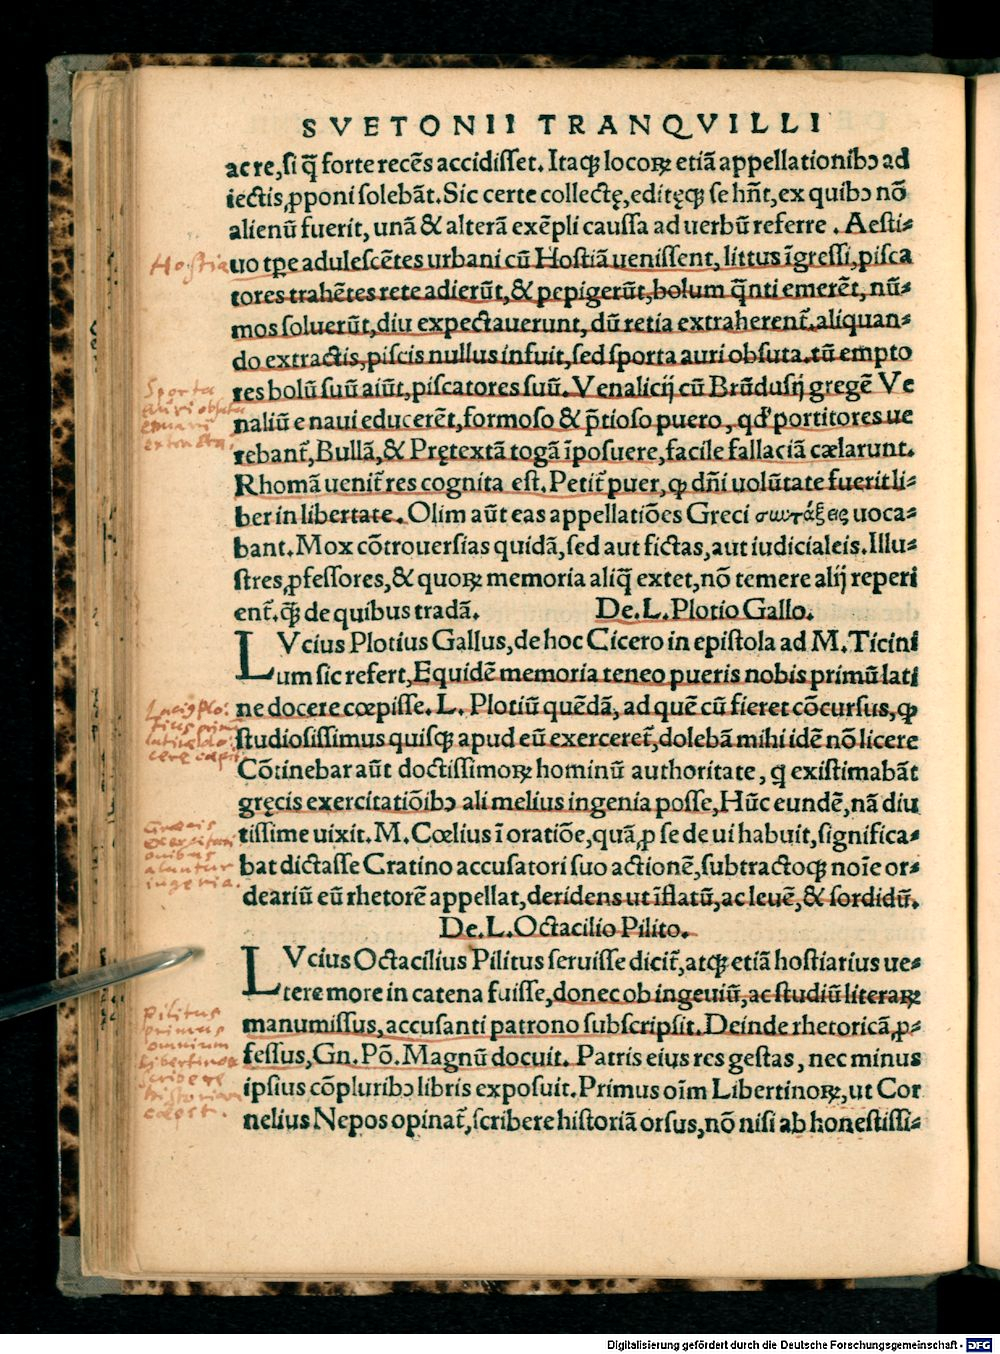 SVETONII TRANQVILLI
ac re, si q̃ forte recẽs accidisset. Itaqꝫ locoꝝ etiã appellationibꝰ ad
iectis, ꝓponi solebãt. Sic certe collectę, editęqꝫ se hñt, ex quibꝰ nõ
alienũ fuerit, unã & alterã exẽpli caussa ad uerbũ referre . Aesti-
Hostia
uo tꝑe adulescẽtes urbani cũ Hostiã uenissent, littus ĩgressi, pisca
tores trahẽtes rete adierũt, & pepigerũt, bolum q̃nti emerẽt, nũ-
mos soluerũt, diu expectauerunt, dũ retia extraherent̃. aliquan-
do extractis, piscis nullus infuit, sed sporta auri obsuta. tũ empto
Sporta
auri obsuta
e mari
extracta.
res bolũ suũ aiũt, piscatores suũ. Venalicij cũ Brũdusij gregẽ Ve
naliũ e naui educerẽt, formoso & p̃tioso puero, qđ portitores ue
rebant̃, Bullã, & Prętextã togã ĩposuere, facile fallaciã cælarunt.
Rhomã uenit̃ res cognita est. Petit̃ puer, ꝙ dñi uolũtate fuerit li-
ber in libertate. Olim aũt eas appellatiões Greci συντάξεις uoca-
bant. Mox cõtrouersias quidã, sed aut fictas, aut iudicialeis. Illu-
stres, ꝓfessores, & quoꝝ memoria aliq̃ extet, nõ temere alij reperi
ent̃. q̃ꝫ de quibus tradã. De. L. Plotio Gallo.
LVcius Plotius Gallus, de hoc Cicero in epistola ad M. Ticini
um sic refert, Equidẽ memoria teneo pueris nobis primũ lati
Lucius Plo-
tius primus
latine do-
cere cœpit
ne docere cœpisse. L. Plotiũ quẽdã, ad quẽ cũ fieret cõcursus, ꝙ
studiosissimus quisqꝫ apud eũ exerceret̃, dolebã mihi idẽ nõ licere
Cõtinebar aũt doctissimoꝝ hominũ authoritate, q̇ existimabãt
gręcis exercitatiõibꝰ ali melius ingenia posse, Hũc eundẽ, nã diu
Graecis
exercitati
onibus
aluntur
ingenia.
tissime uixit. M. Cœlius ĩ oratiõe, quã, ꝓ se de ui habuit, significa-
bat dictasse Cratino accusatori suo actionẽ, subtractoqꝫ noĩe or-
deariũ eũ rhetorẽ appellat, deridens ut ĩflatũ, ac leuẽ, & sordidũ.
De. L. Octacilio Pilito.
LVcius Octacilius Pilitus seruisse dicit̃, atqꝫ etiã hostiarius ue-
tere more in catena fuisse, donec ob ingeuiũ, ac studiũ literaꝝ
Pilitus
primus
omnium
libertinorum
scribere
historiam
cœpit.
manumissus, accusanti patrono subscripsit. Deinde rhetoricã, ꝓ-
fessus, Gn. Põ. Magnũ docuit. Patris eius res gestas, nec minus
ipsius cõpluribꝰ libris exposuit. Primus oĩm Libertinoꝝ, ut Cor
nelius Nepos opinat̃, scribere historiã orsus, nõ nisi ab honestissi-
Digitalisierung gefördert durch die Deutsche Forschungsgemeinschaft - DFG